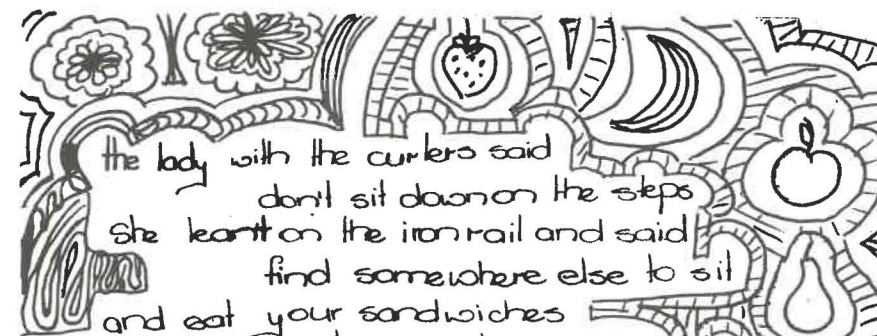 the lady with the curlers said
don't sit down on the steps
she leant on the iron rail and said
find somewhere else to sit
and eat your sandwiches